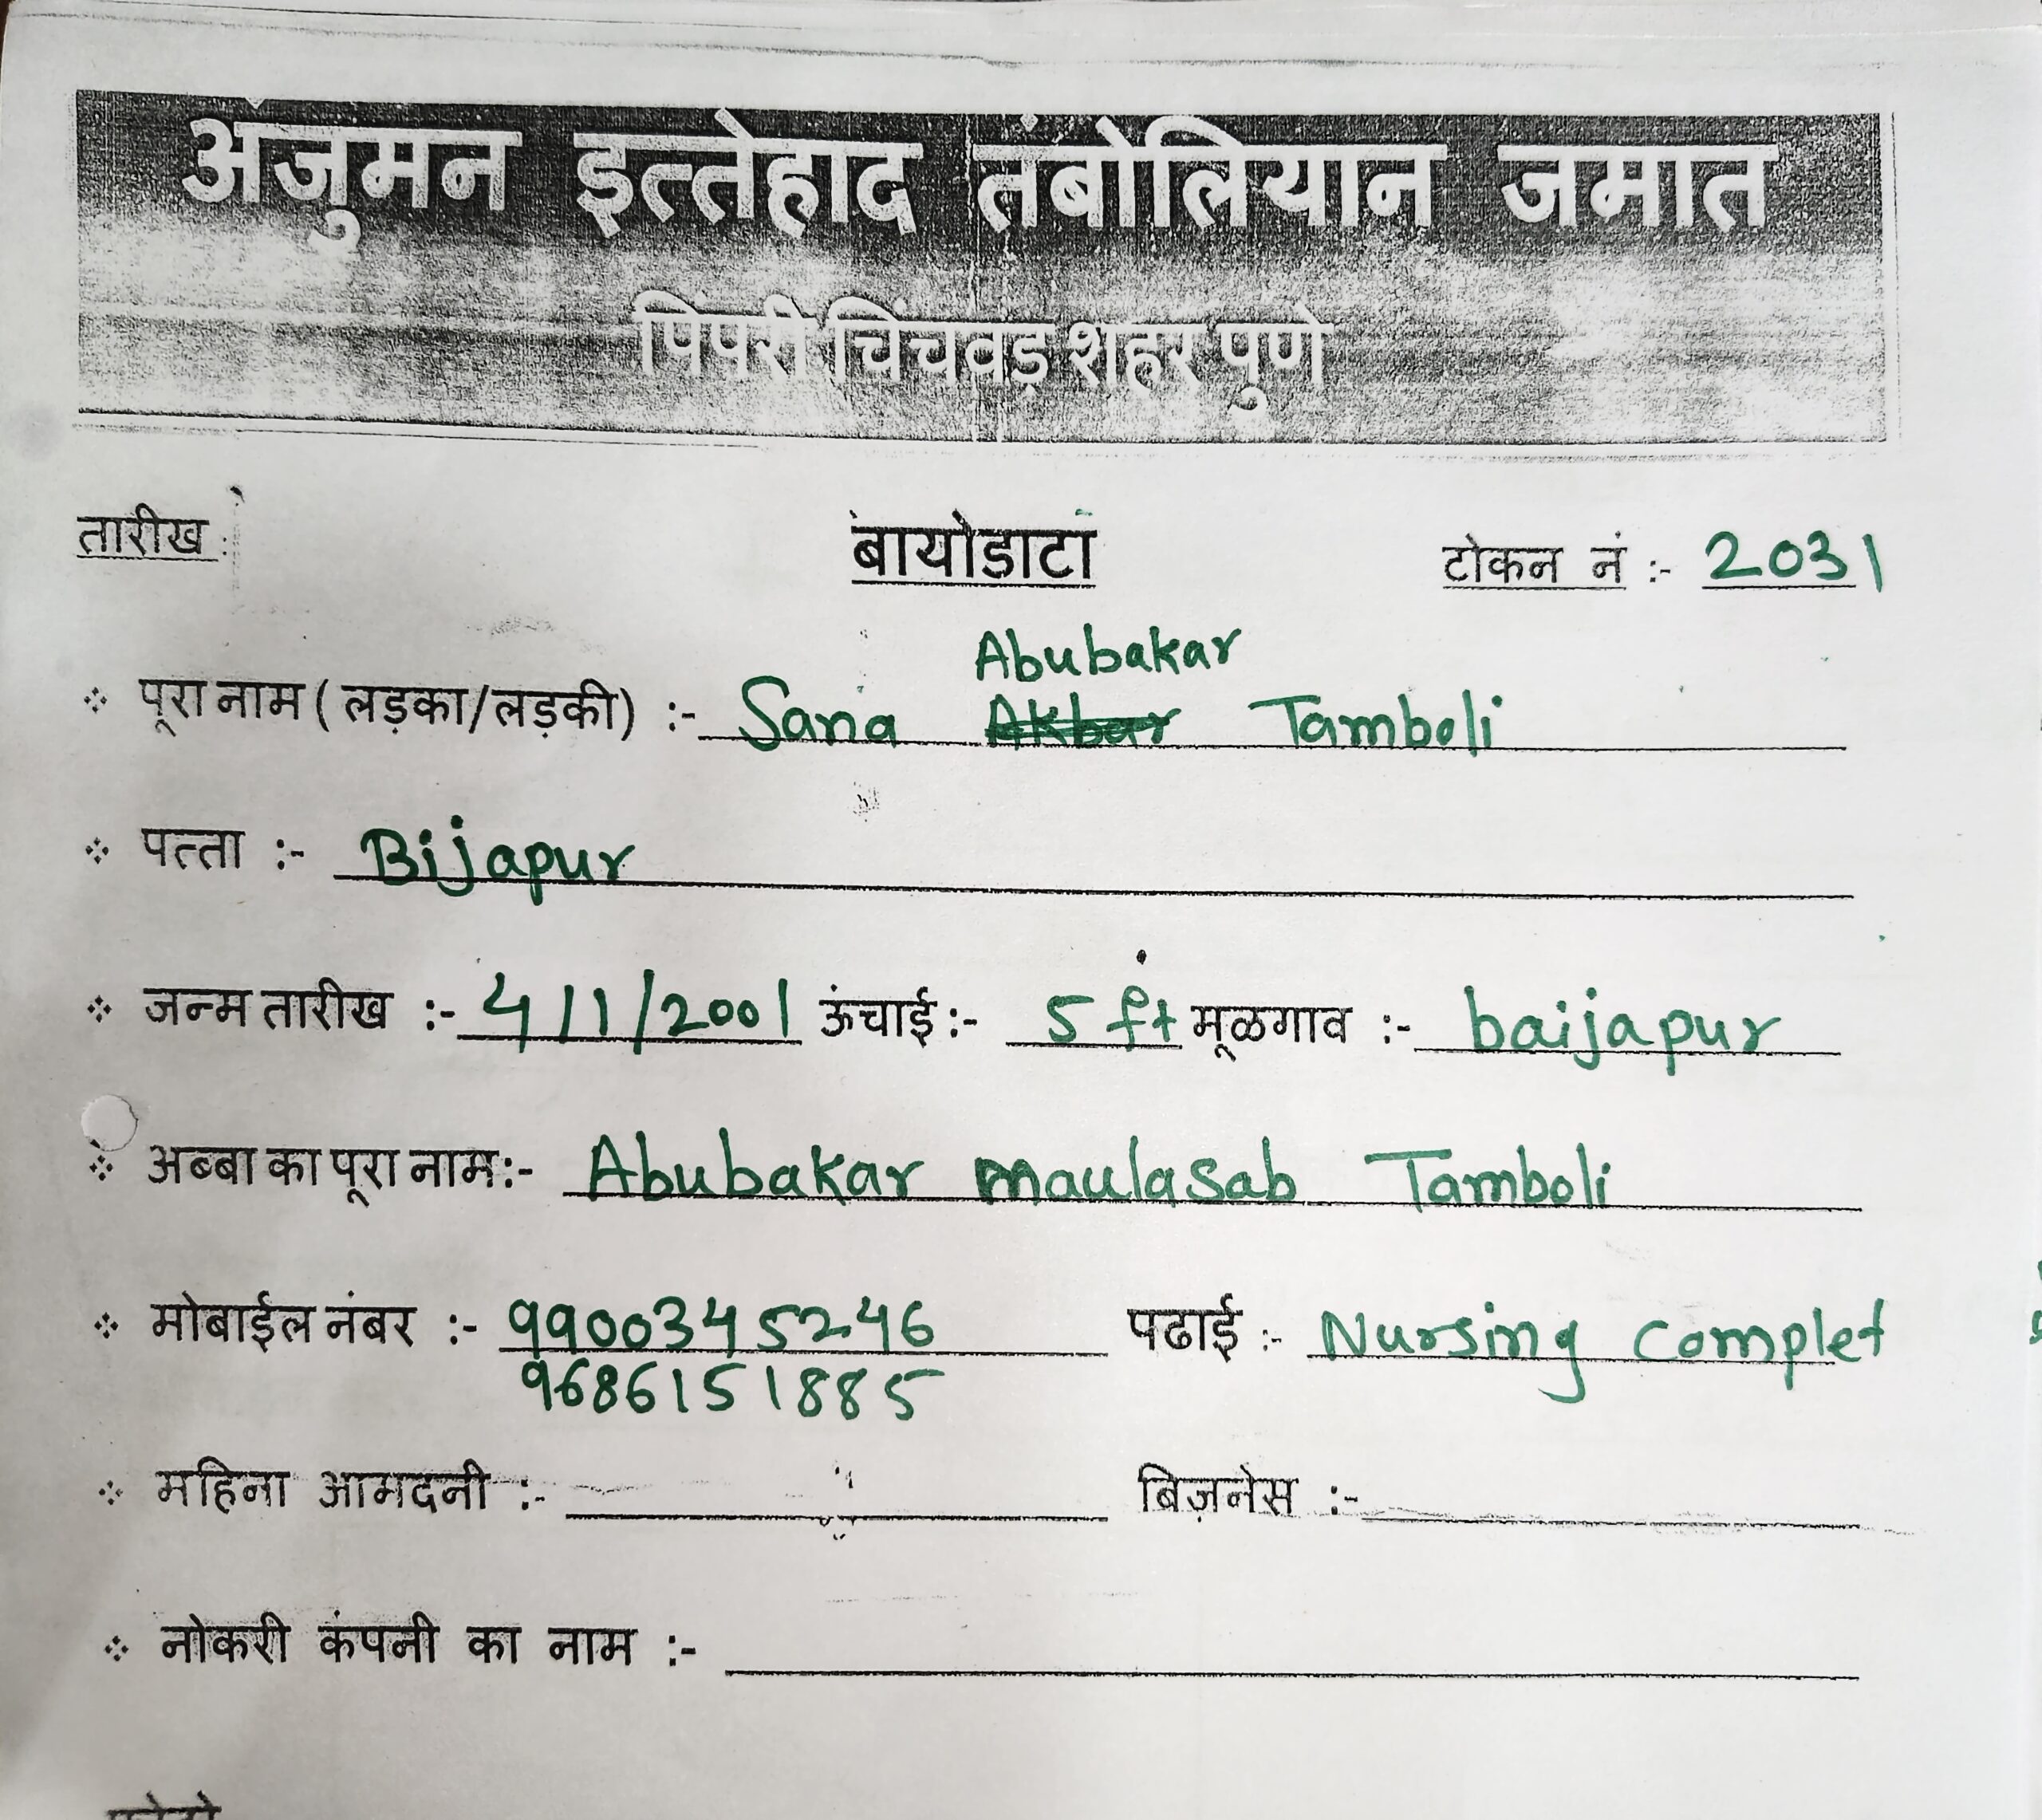 अंजुमन इत्तेहाद तंबोलियान जमात
पिंपरी चिंचवड़ शहर पुणे
तारीख : बायोडाटा टोकन नं :- 2031
Abubakar
पूरा नाम ( लड़का/लड़की) :- Sana Akbar Tamboli
पत्ता :- Bijapur
जन्म तारीख :- 4/1/2001 ऊंचाई :- 5 ft मूळगाव :- baijapur
अब्बा का पूरा नाम:- Abubakar maulasab Tamboli
मोबाईल नंबर :- 9900345246 पढाई :- Nursing complet
9686151885
महिना आमदनी :- बिज़नेस :-
नोकरी कंपनी का नाम :-